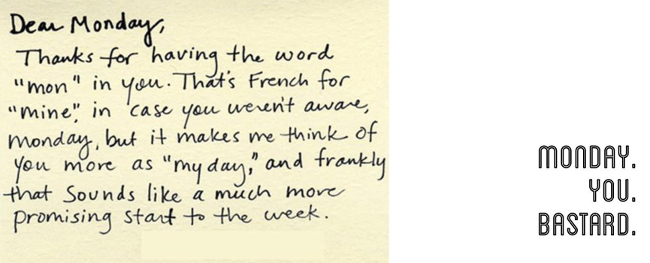 Dear Monday,
Thanks for having the word
"mon" in you. That's French for
"mine", in case you weren't aware,
monday, but it makes me think of
you more as "my day," and frankly
that sounds like a much more
promising start to the week.
MONDAY.
YOU.
BASTARD.